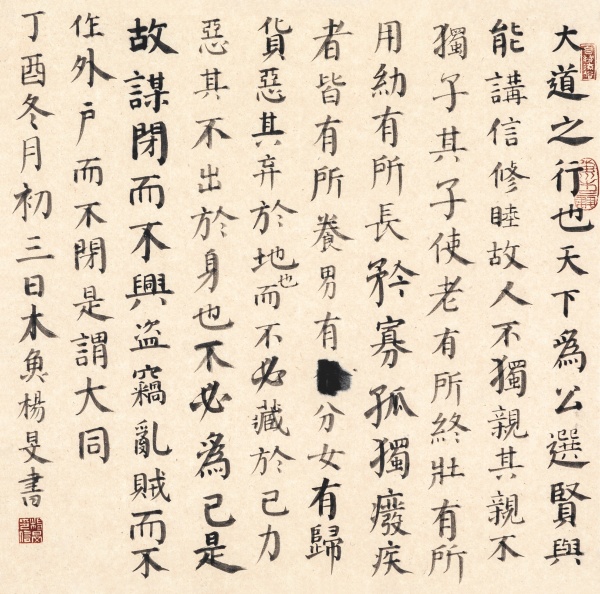 大道之行也天下為公選賢與
能講信修睦故人不獨親其親不
獨子其子使老有所終壯有所
用幼有所長矜寡孤獨癈疾
者皆有所養男有分女有歸
貨惡其弃於地也而不必藏於己力
惡其不出於身也不必為己是
故謀閉而不興盜竊亂賊而不
作外戶而不閉是謂大同
丁酉冬月初三日木魚楊旻書